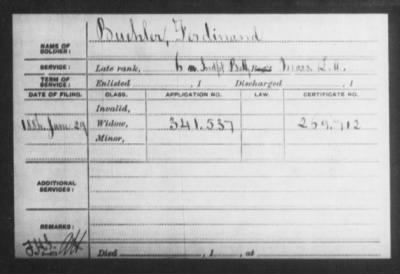 Buehler, Ferdinand
NAME OF SOLDIER:
SERVICE: Late rank, Mass. L. A.
TERM OF SERVICE: Enlisted , 1 Discharged , 1
DATE OF FILING. CLASS. APPLICATION NO. LAW. CERTIFICATE NO.
Invalid,
1886, June 29 Widow, 341.537 269.712
Minor,
ADDITIONAL SERVICES:
REMARKS:
Died , 1 , at